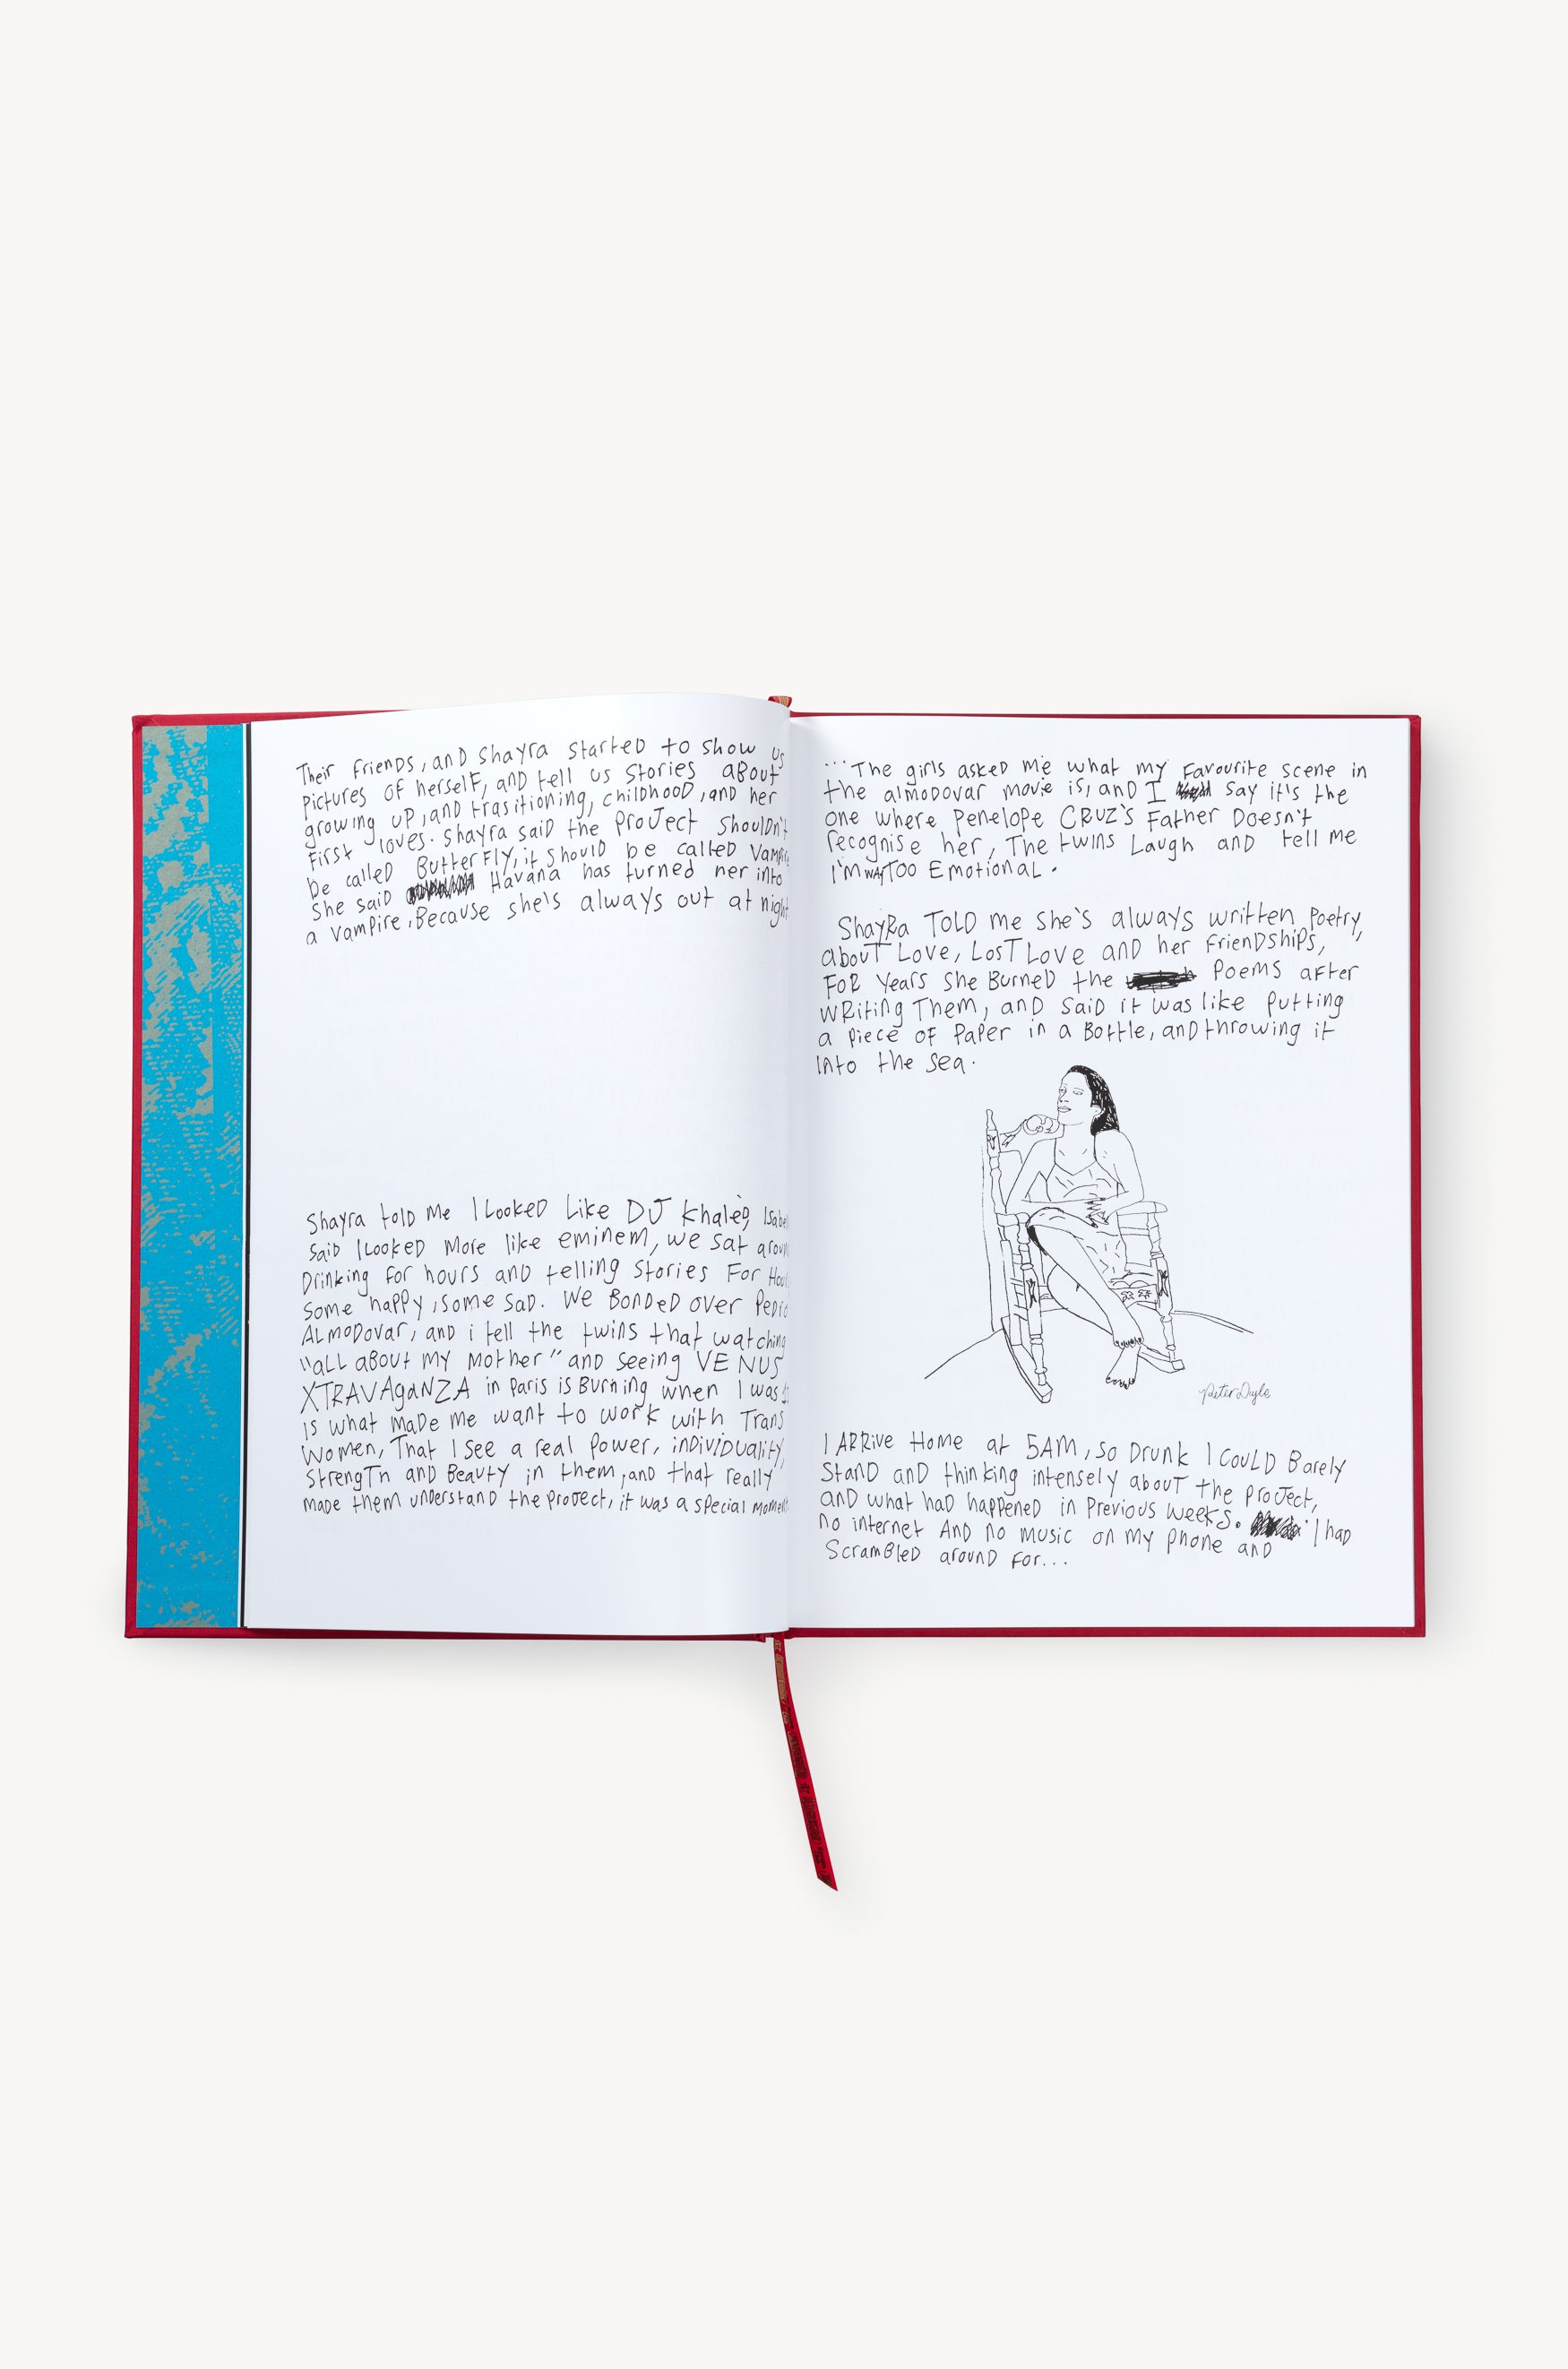 Their Friends, and Shayra started to show us
pictures of herself, and tell us stories about
growing up, and trasitioning, childhood, and her
First loves. Shayra said the Project shouldn't
be called ButterFly, it should be called Vampire
She said Havana has turned her into
a vampire, Because she's always out at night
Shayra told me I Looked Like DJ Khaled,
said I Looked More like eminem, we sat
Drinking for hours and telling stories For
some happy, some sad. We Bonded over
ALmodovar, and i tell the twins that watching
"aLL aBout my Mother" and seeing VENUS
XTRAVAgaNZA in Paris is Burning when I was
is what made me want to work with Trans
Women, That I see a real Power, individuality,
StrengTh and Beauty in them, and that really
made them understand the project, it was a special
...The girls asked me what my Favourite scene in
the almodovar movie is, and I say it's the
one where Penelope CRUZ's Father Doesn't
recognise her, The twins Laugh and tell me
I'm way TOO Emotional.
ShayRa TOLD me she's always written Poetry,
abouT Love, LosT Love and her Friendships,
FOR Years She Burned the Poems after
WRiting Them, and said it was like Putting
a Piece of Paper in a Bottle, and throwing it
Into the sea.
Peter Doyle
I ARRive Home at 5AM, so Drunk I CoULD Barely
Stand and thinking intensely abouT the project,
and what had happened in Previous weeks. I had
No internet And no music on my Phone and
ScramBled around For...